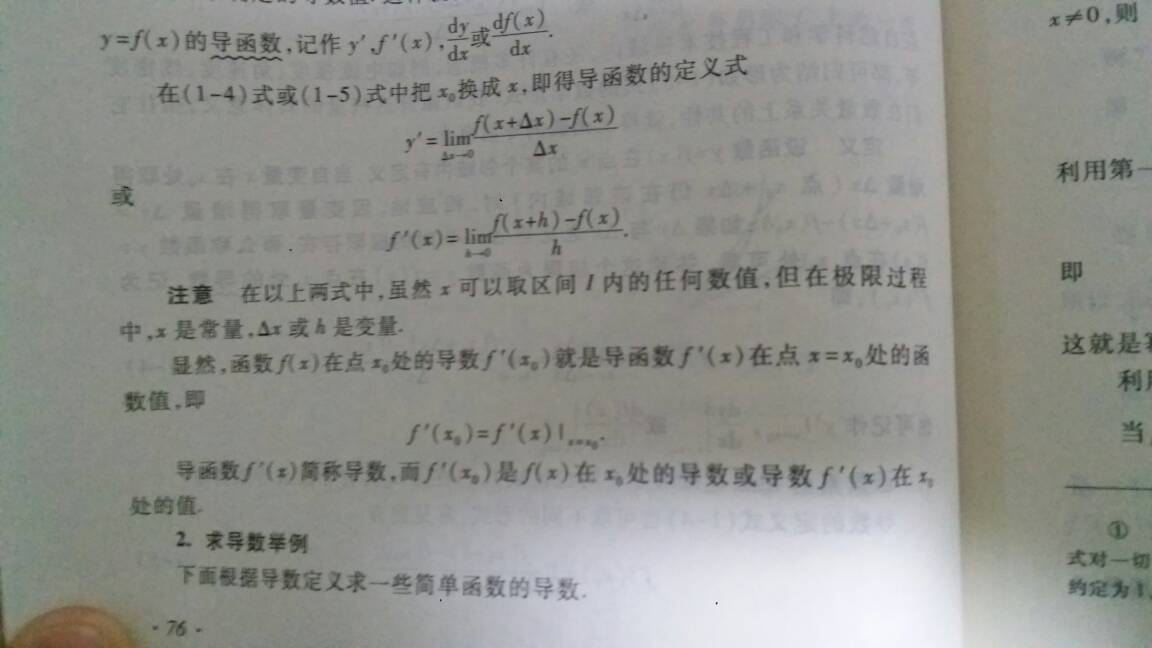 y=f(x)的导函数,记作 y',f'(x),dy/dx或df(x)/dx.
在(1-4)式或(1-5)式中把 x₀换成 x,即得导函数的定义式
y'=lim_{Δx→0} (f(x+Δx)-f(x))/Δx
或
f'(x)=lim_{h→0} (f(x+h)-f(x))/h.
注意 在以上两式中,虽然 x 可以取区间 I 内的任何数值,但在极限过程
中,x 是常量,Δx 或 h 是变量.
显然,函数f(x)在点 x₀处的导数f'(x₀)就是导函数f'(x)在点 x=x₀处的函
数值,即
f'(x₀)=f'(x)|_{x=x₀}.
导函数f'(x)简称导数,而f'(x₀)是f(x)在 x₀处的导数或导数f'(x)在 x₀
处的值.
2. 求导数举例
下面根据导数定义求一些简单函数的导数.
·76·
x≠0,则
利用第一
即
这就是
利用
当
①
式对一切
约定为1,